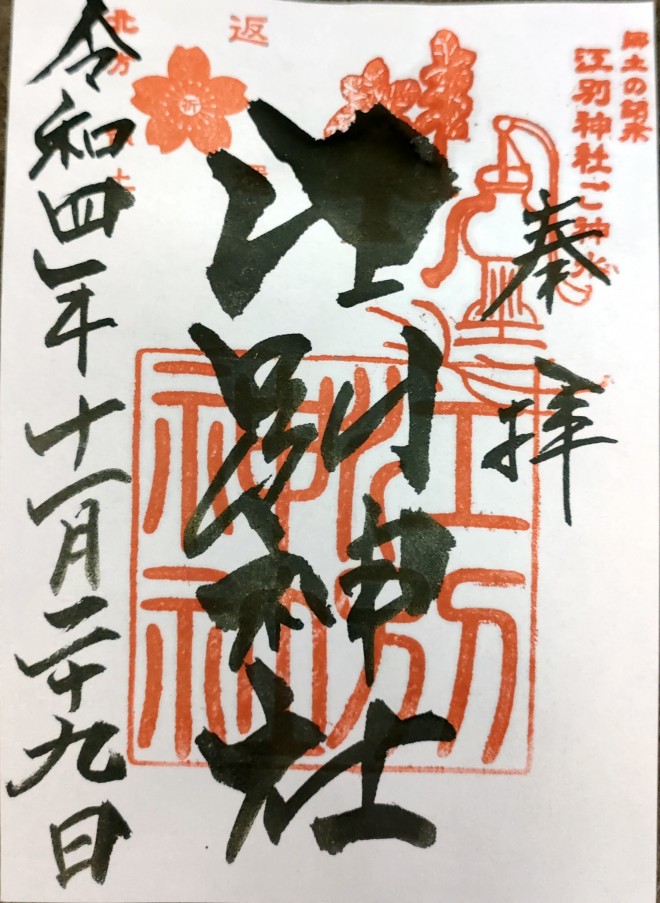 郷土の訪永
江別神社ご神水
奉拝
江別神社
江別神社
令和四年十一月二十九日
返
北方